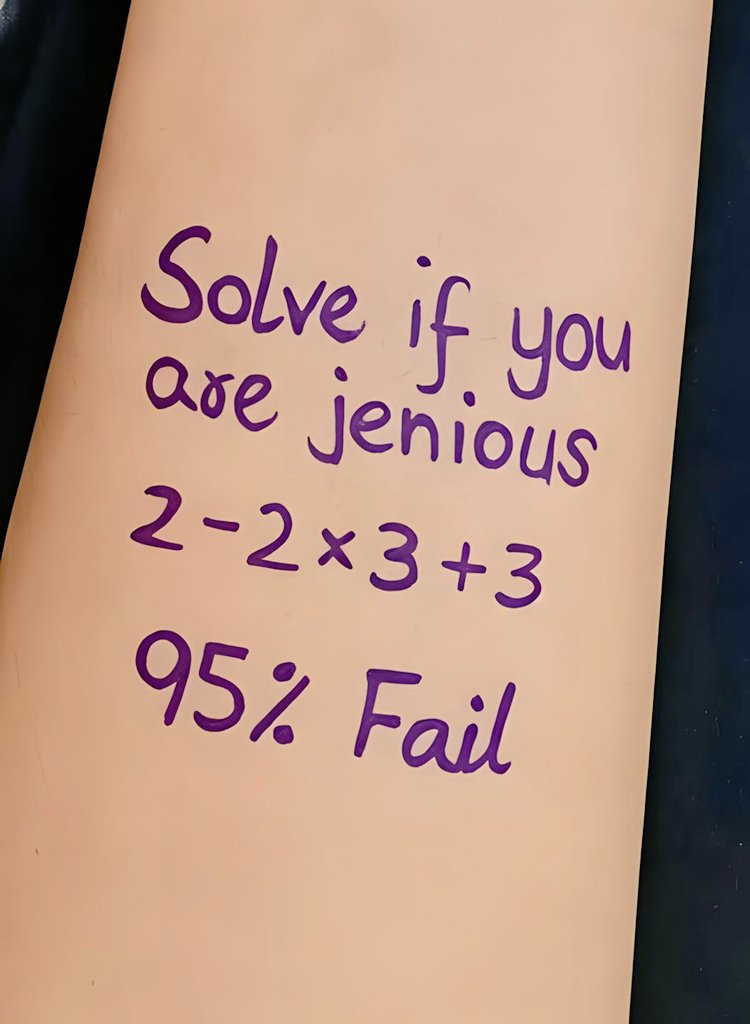 Solve if you
are jenious
2-2×3+3
95% Fail